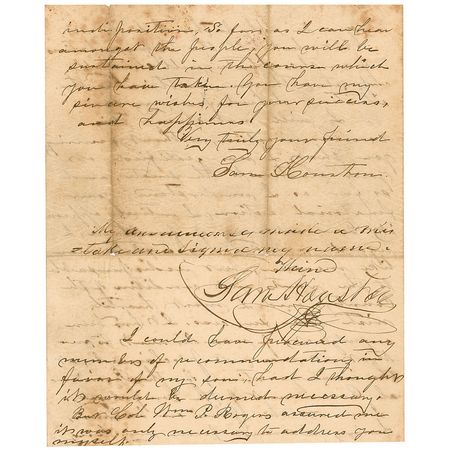 indisposition, So far as I can hear
amongst the people, you will be
sustained in the course which
you have taken. You have my
sincere wishes, for your success,
and happiness.
Very truly your friend
Sam Houston.
My amanuensis, made a mis
take and signed my name.
Thine
Sam Houston
I could have procured any
numbers of recommendations in
favor of my son, had I thought
it would be deemed necessary.
But Col Wm P. Rogers assured me
it was only necessary to address you
myself.